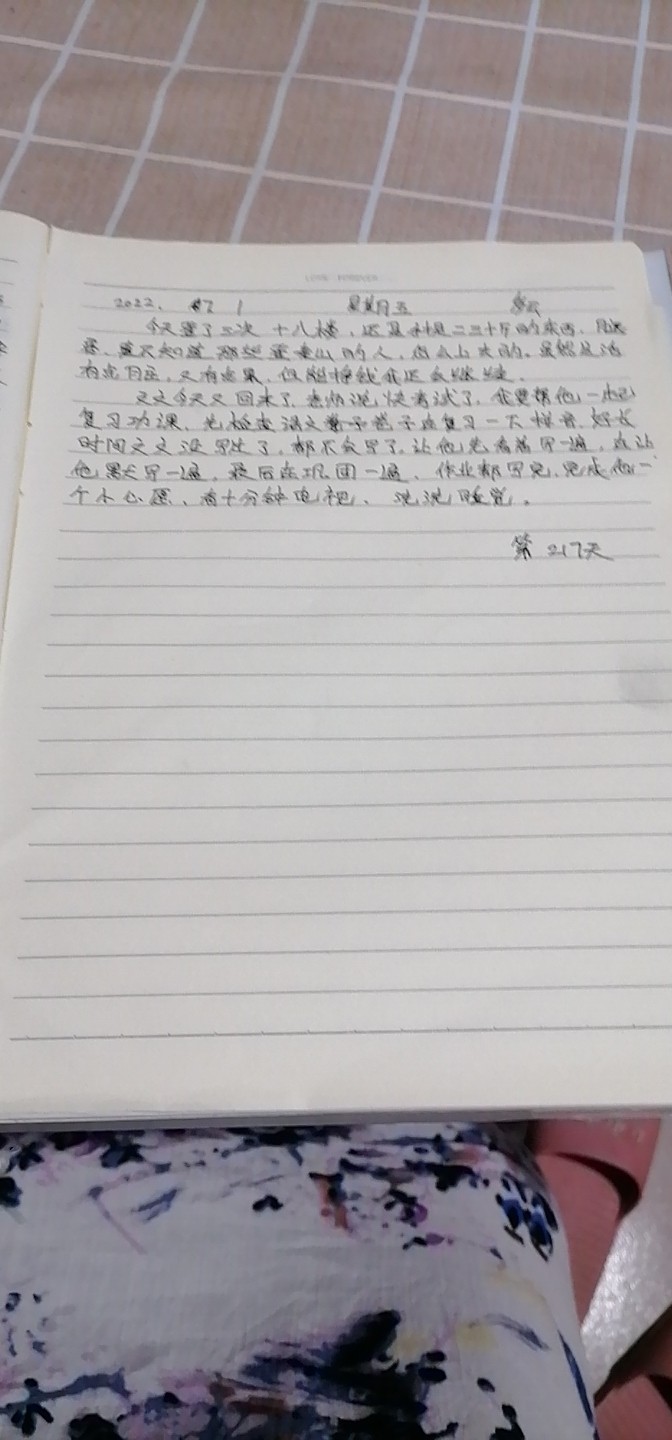 2022. 7 1 星期五 多云
今天登了三次十八楼，还是扛是二三十斤的东西，
不知道那些 的人，怎么上去的。虽然生活
有点，又有点累，但能挣钱我还会继续。
文文今天又回来了，老师说快考试了，我要帮他一起
复习功课，先检查语文 子 在复习一下拼音，好长
时间文文没写生了，都不会写了，让他先看着写一遍，在让
他默写一遍，最后在巩固一遍，作业都写完，完成他一
个小心愿，看十分钟电视，洗洗睡觉。
第217天